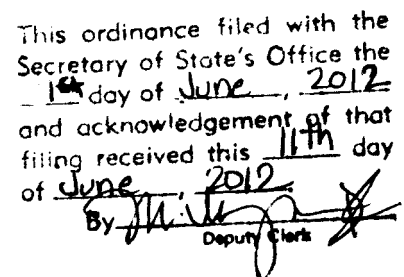 This ordinance filed with the
Secretary of State's Office the
1st day of June, 2012
and acknowledgement of that
filing received this 11th day
of June, 2012.
By
Deputy Clerk